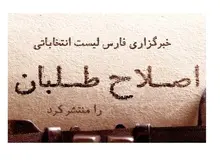 خبرگزاری فارس لیست انتخاباتی
اصلاح طلبان
را منتشر کرد